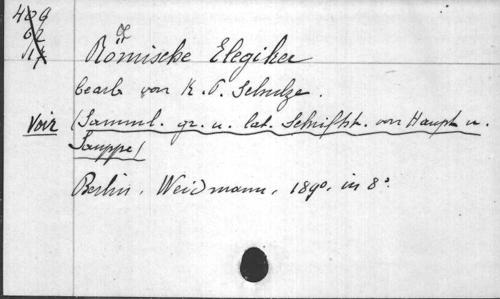 409
62
17
Römische Elegiker
bearb von K. P. Schulze.
Voir (Samml. gr. u. lat. Schriftst. von Haupt u.
Sauppe)
Berlin, Weidmann, 1890, in 8º